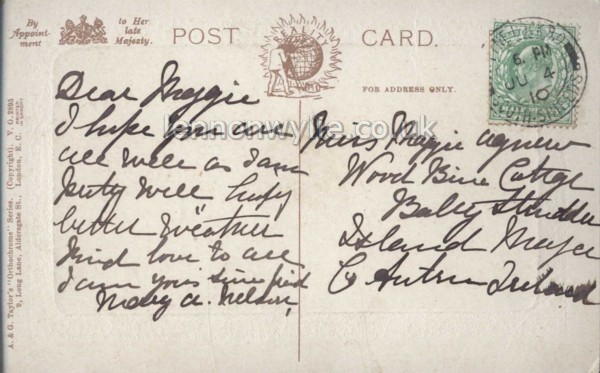 By
Appoint-
ment
to Her
late
Majesty.
POST CARD.
REALITY
FOR ADDRESS ONLY.
6 PM
JU 4
10
A. & G. Taylor's "Orthochrome" Series. (Copyright). V. G. 2895
9, Long Lane, Aldersgate St., London, E. C.
lennonwylie.co.uk
Dear Maggie
I hope you are
all well as I am
better weather
Kind love to all
I am yours friend
Mary A. Nelson
Miss Maggie Agnew
Wood Bine Cottage
Bally
Island Magee
Co Antrim Ireland